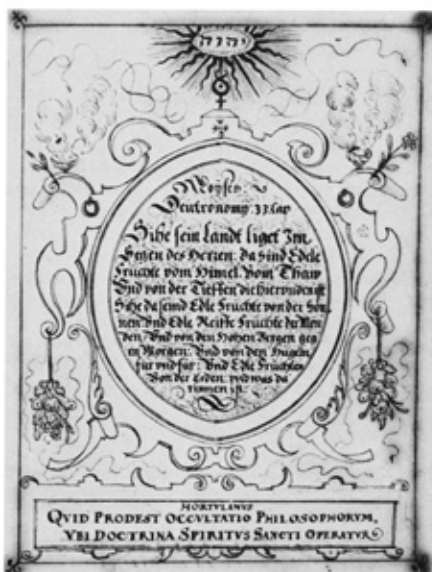 יהוה
Moysen:
Deutronomy: 33. Cap
Sihe sein Landt liget Im
Segen des Herzen: da sind Edele
Fruchte vom Himel. Vom Thaw
Vnd von der Tieffen die hierunden ist
Sihe da seind Edle Fruchte von der Son
nen Vnd Edle Reiffe Fruchte des Mon
den / Vnd von den Hohen Bergen geg
en Morgen: Vnd von den Hugeln
fur vnd fur: Vnd Edle Fruchten
Von der Erden: vnd was da
rinnen ist.
HORTVLANVS
QVID PRODEST OCCVLTATIO PHILOSOPHORVM,
VBI DOCTRINA SPIRITVS SANCTI OPERATVR